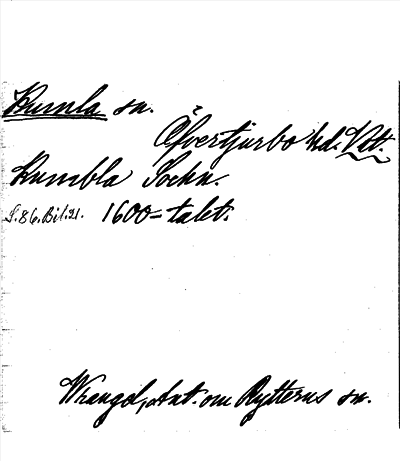 Kumla sn.
Öfvertjurbo hd. Vtt.
Kumbla Sochn.
S. 86. Bil. 21. 1600-talet.
Wrangel, Ant. om Rytterns sn.